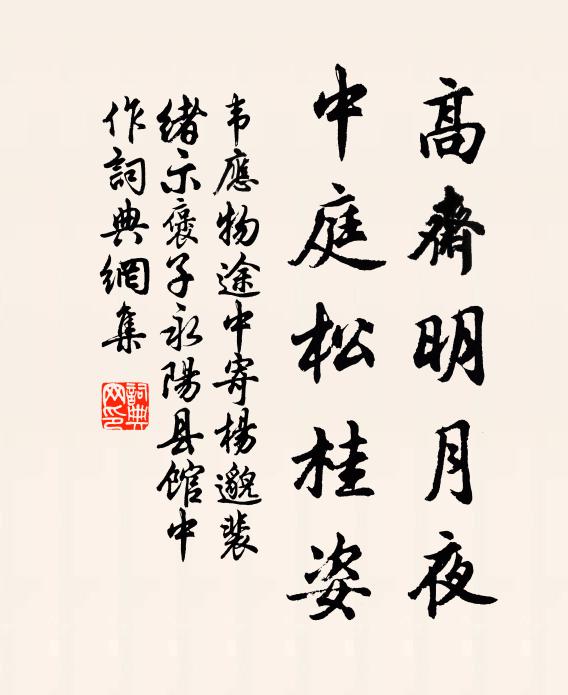 高齋明月夜
中庭松桂姿
韦應物途中寄楊邈裴
緒示褒子永陽县館中
作詞典網集
詞典
网印